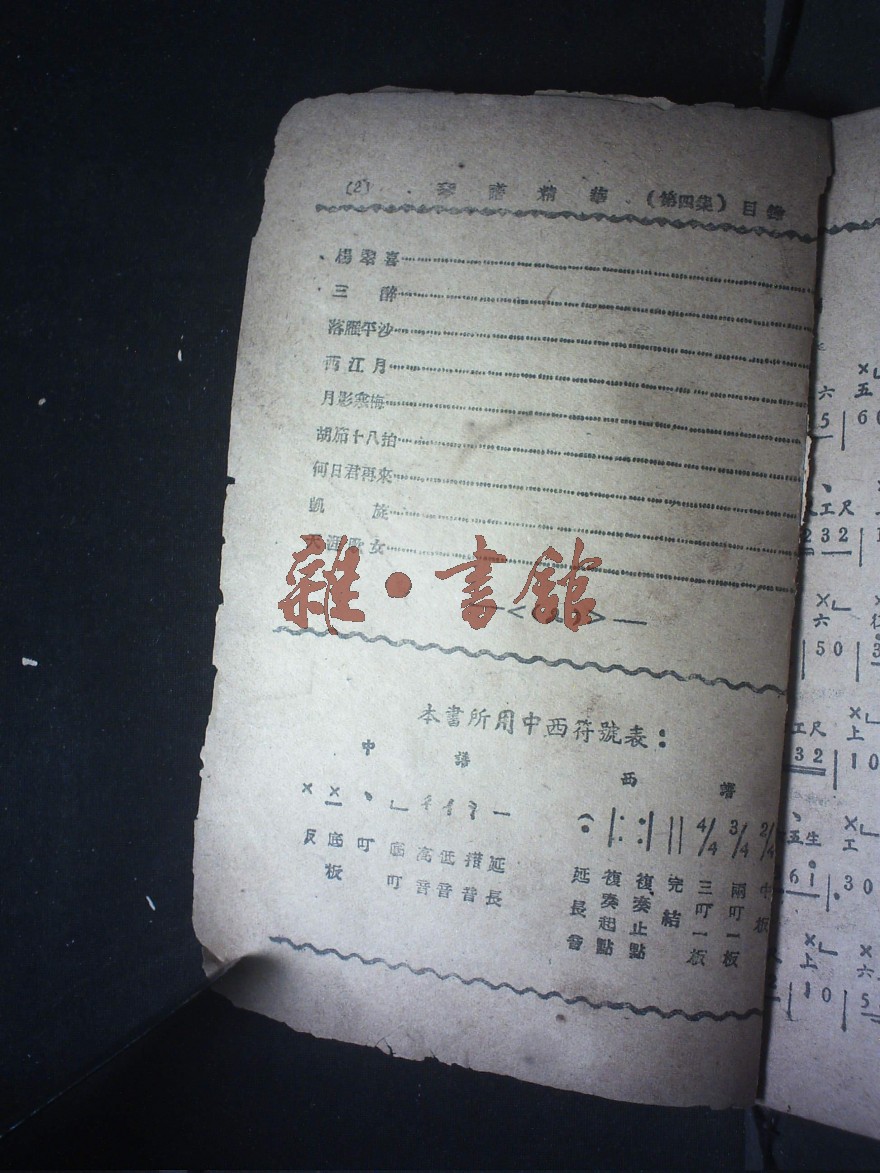 (2) 琴譜精華 (第四集) 目錄
楊翠喜
三醉
落雁平沙
西江月
月影寒梅
胡笳十八拍
何日君再來
凱旋
天涯歌女
雜·書館
本書所用中西符號表：
中譜
× 反
× 底板
丶 叮
∟ 底叮
高音
低音
揩音
一 延長
西譜
延長音
|: 複奏起點
:| 複奏止點
|| 完結
4/4 三叮一板
3/4 兩叮一板
2/4 中板
六 五
5 | 6 0
工尺
2 32 | 1
六
| 5 0 | 3
工尺 上
32 | 1 0
五生 工
6 1 | 3 0
上 六
| 1 0 | 5